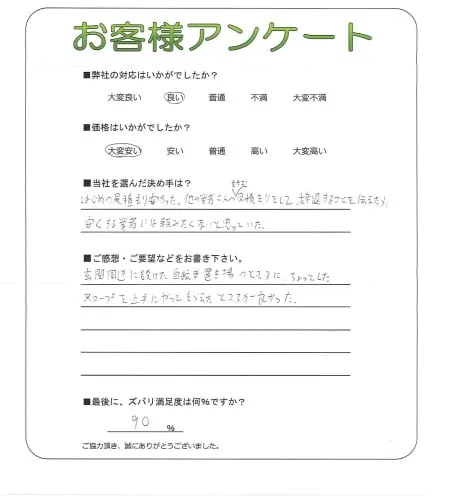 お客様アンケート
■弊社の対応はいかがでしたか?
大変良い 良い 普通 不満 大変不満
■価格はいかがでしたか?
大変安い 安い 普通 高い 大変高い
■当社を選んだ決め手は?
はじめの見積もり安かった、他の業者さんの見積をりをして、辞退することを伝えたら、
安くする業者には頼みたくないと思っていた。
■ご感想・ご要望などをお書き下さい。
玄関周辺に設けた自転車置き場のところに、ちょっとした
スロープを上手にやってもらえたところが良かった。
■最後に、ズバリ満足度は何%ですか?
90 %
ご協力頂き、誠にありがとうございました。